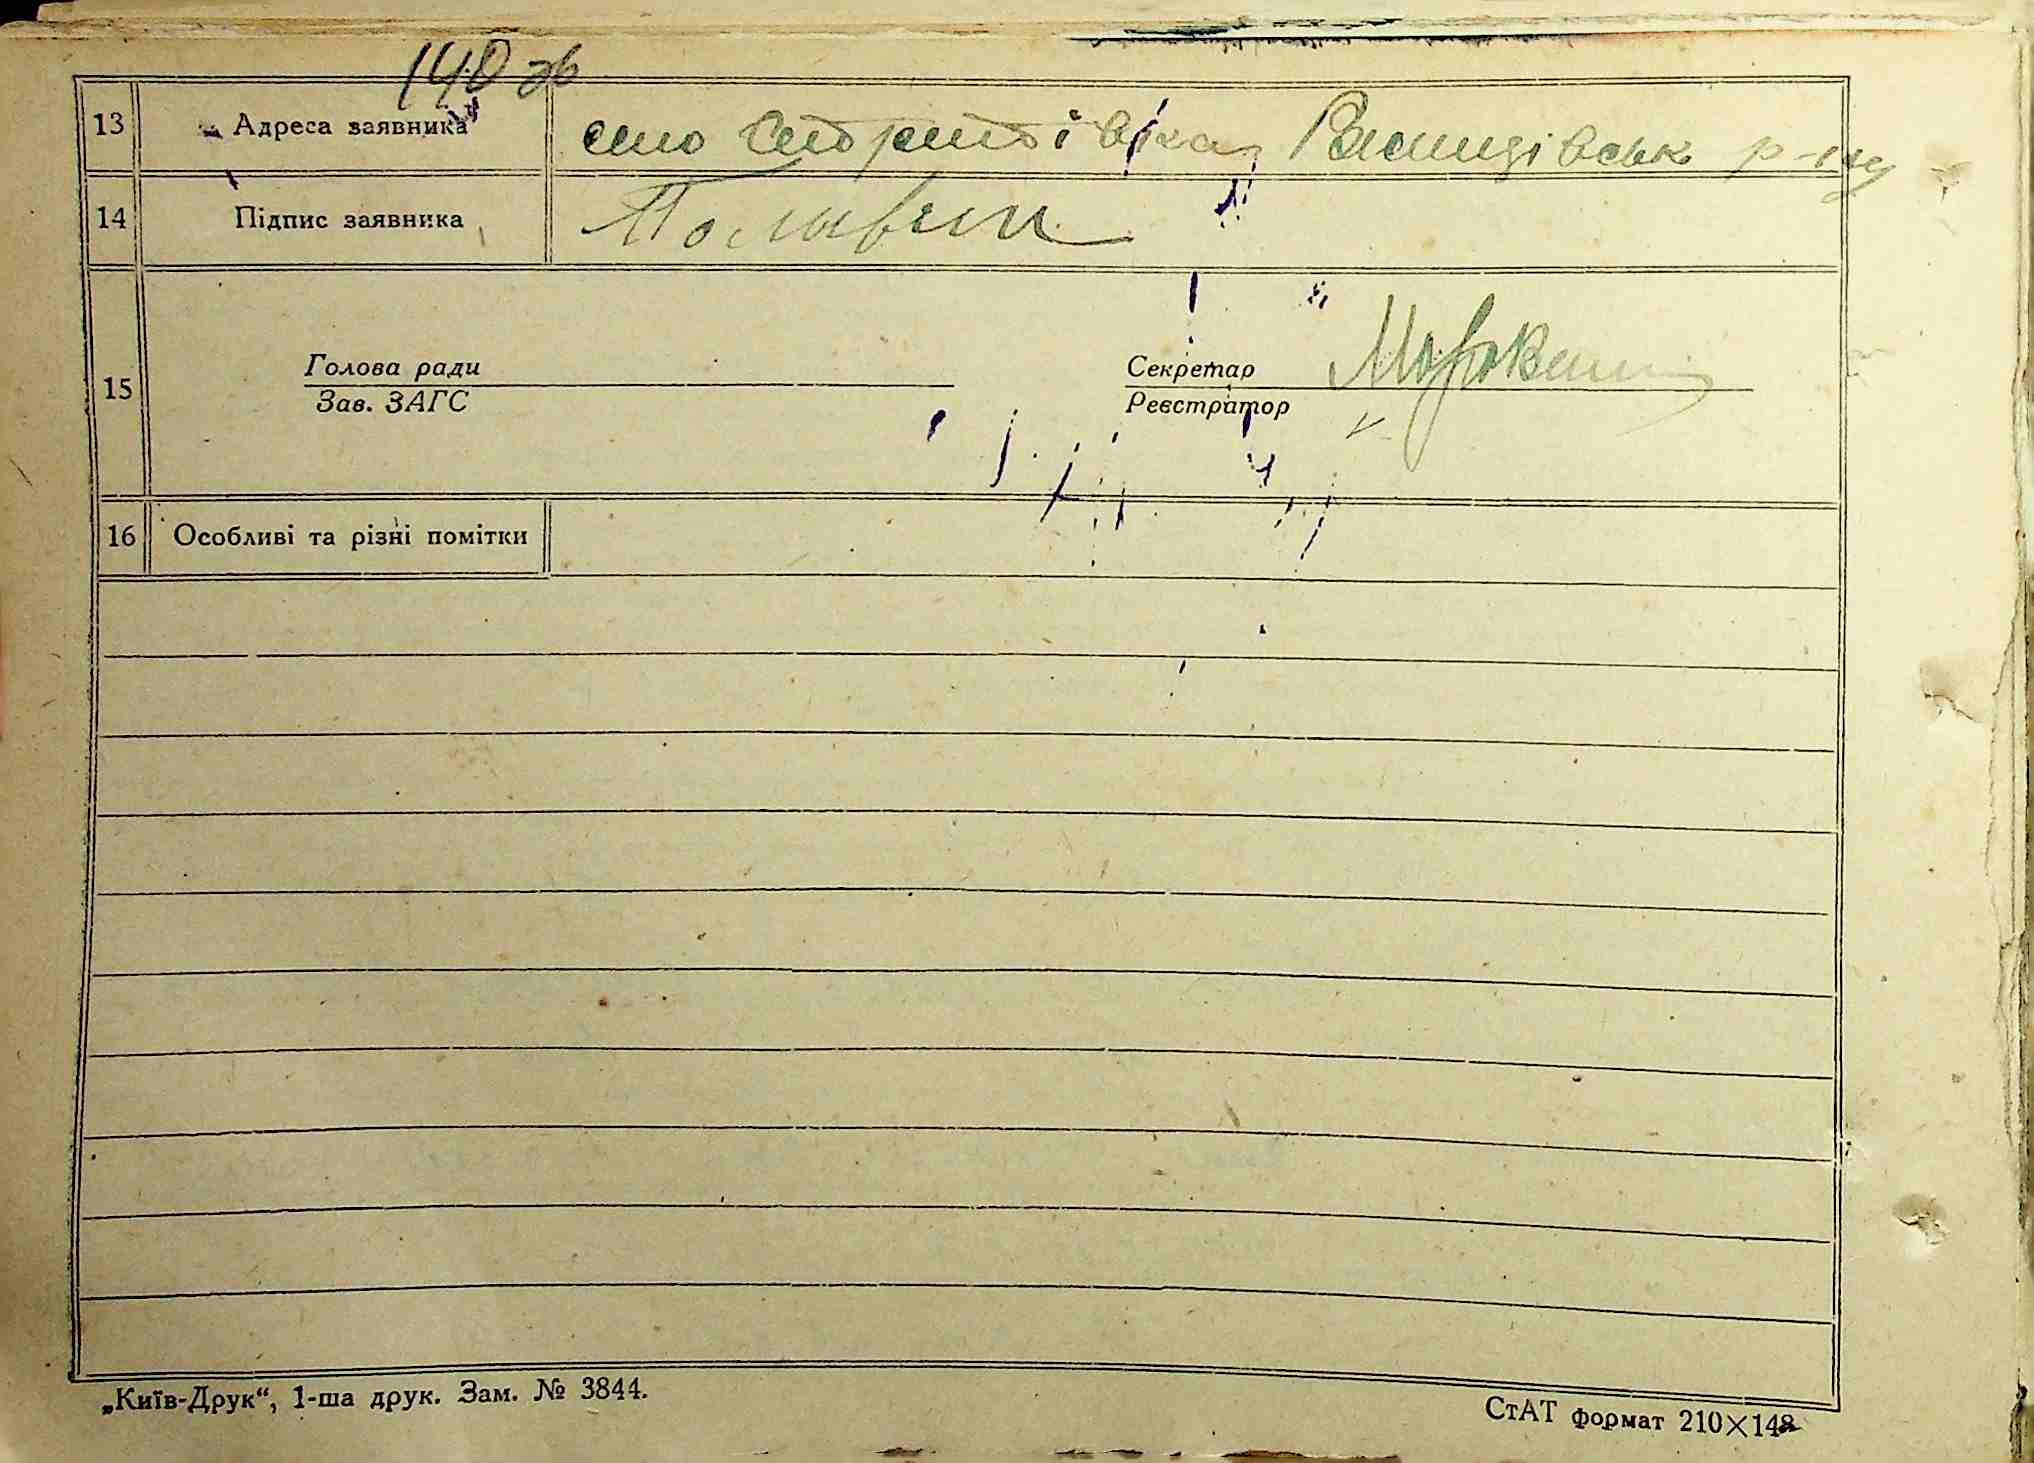 140 зв
13 Адреса заявника село р-ну
14 Підпис заявника
15 Голова ради Секретар
Зав. ЗАГС Реєстратор
16 Особливі та різні помітки
„Київ-Друк“, 1-ша друк. Зам. № 3844. СтАТ формат 210×148